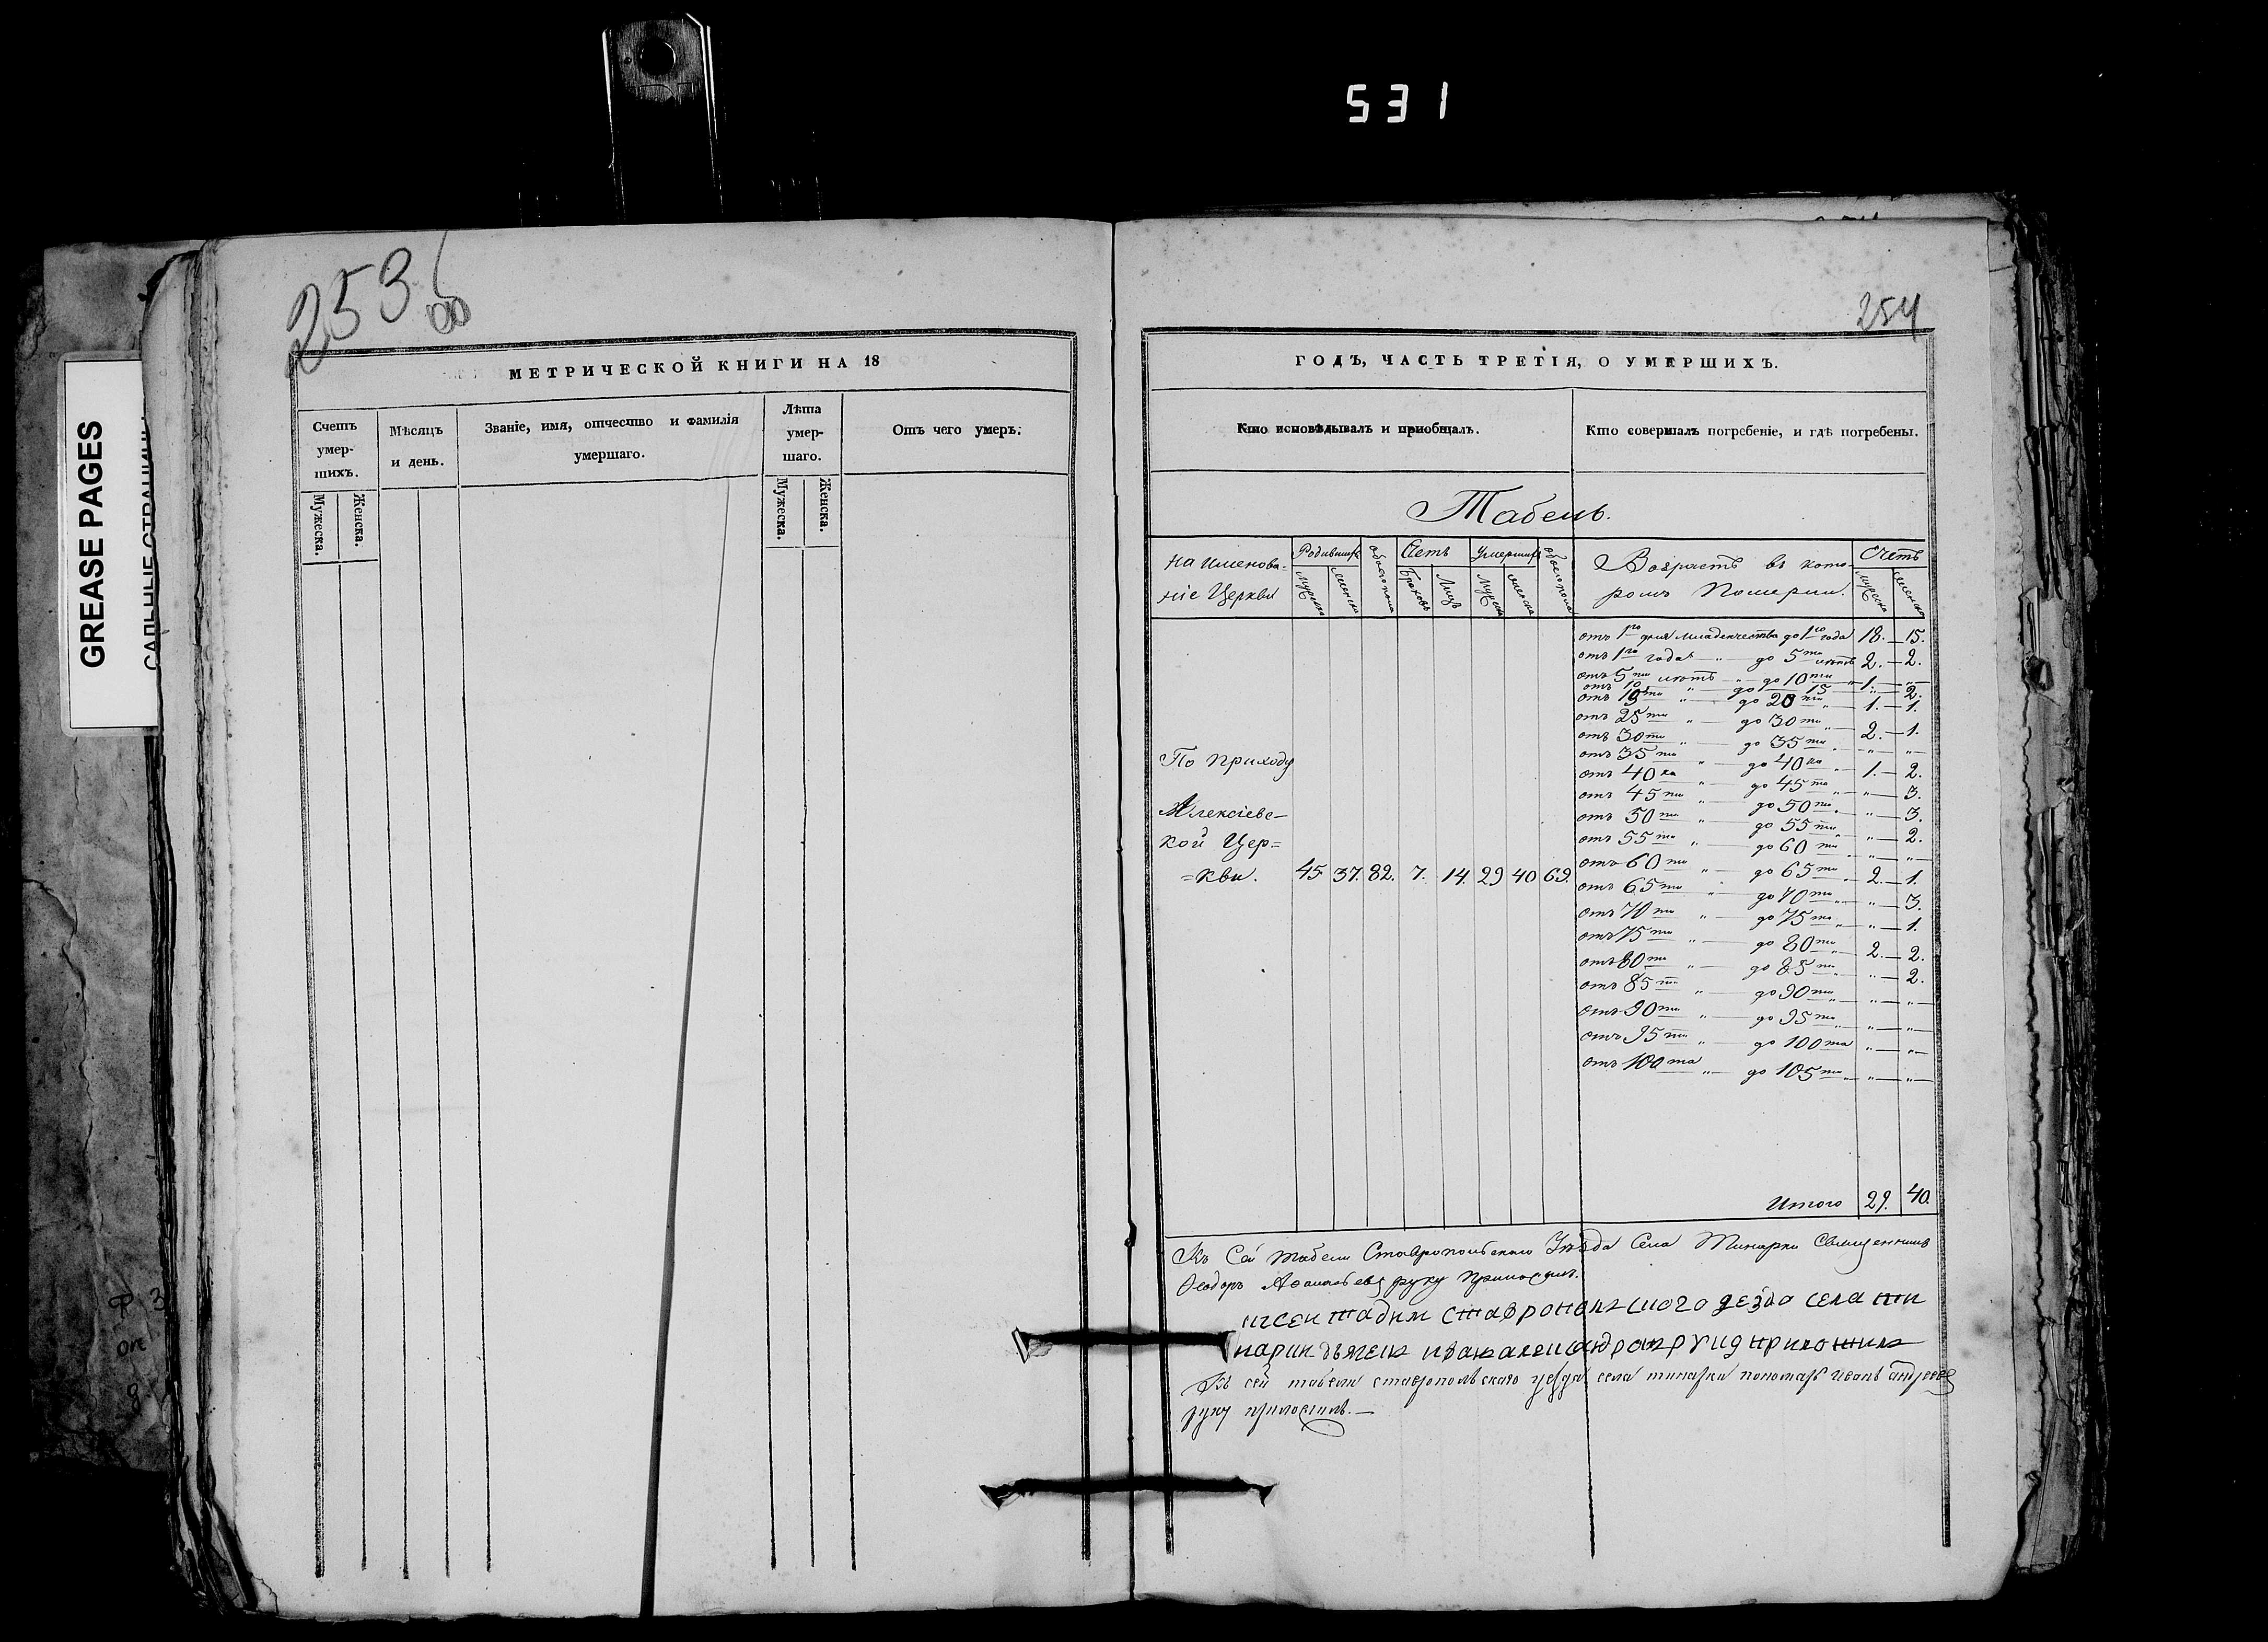 531
GREASE PAGES
САЛЬНЫЕ СТРАНИЦЫ
253 об
МЕТРИЧЕСКОЙ КНИГИ НА 18
Счетъ умер-шихъ.
Мужеска.
Женска.
Мѣсяцъ и день.
Званіе, имя, отчество и фамилія умершаго.
Лѣта умер-шаго.
Мужеска.
Женска.
Отъ чего умеръ.
254
ГОДЪ, ЧАСТЬ ТРЕТІЯ, О УМЕРШИХЪ.
Кто исповѣдывалъ и приобщалъ.
Кто совершалъ погребеніе, и гдѣ погребены.
Табель.
Наименова-
ніе Церкви
Родившихъ
мужеска
женска
обоего пола
Счетъ
Браковъ
Лицъ
Умершихъ
мужеска
женска
обоего пола
Возрастъ въ кото-
ромъ Померли.
Счетъ
мужеска
женска
По приходу
Алексіевс-
кой Цер=
=кви. 45. 37. 82. 7. 14. 29 40 69.
отъ 1го дня младенчества до 1го года 18. — 15.
отъ 1го года " — до 5ти лѣтъ 2. — 2.
отъ 5ти лѣтъ " — до 10ти " 1. — "
отъ 10 " — до 15 " — 2.
отъ 15ти " — до 20ти " 1. — 1.
отъ 25ти " — до 30ти " 2. — 1.
отъ 30ти " — до 35ти " " — "
отъ 35ти " — до 40ка " 1. — 2.
отъ 40ка " — до 45ти " " — 3.
отъ 45ти " — до 50ти " " — 3.
отъ 50ти " — до 55ти " " — 2.
отъ 55ти " — до 60ти " " — "
отъ 60ти " — до 65ти " 2. — 1.
отъ 65ти " — до 70ти " " — 3.
отъ 70ти " — до 75ти " " — 1.
отъ 75ти " — до 80ти " 2. — 2.
отъ 80ти " — до 85ти " " — 2.
отъ 85ти " — до 90ти " " — "
отъ 90ти " — до 95ти " " — "
отъ 95ти " — до 100та " — "
отъ 100та " — до 105ти " — " — "
Итого 29. 40.
Къ Сей табели Ставропольскаго Уѣзда Села Тинарки Священникъ
Ѳеодоръ руку приложилъ.
ксеи табили ставропольского уезда села ти
нарки дьячекъ руку приложилъ
Къ сей табели ставропольскаго уезда села тинарки пономарь иванъ андреевъ
руку приложилъ. —